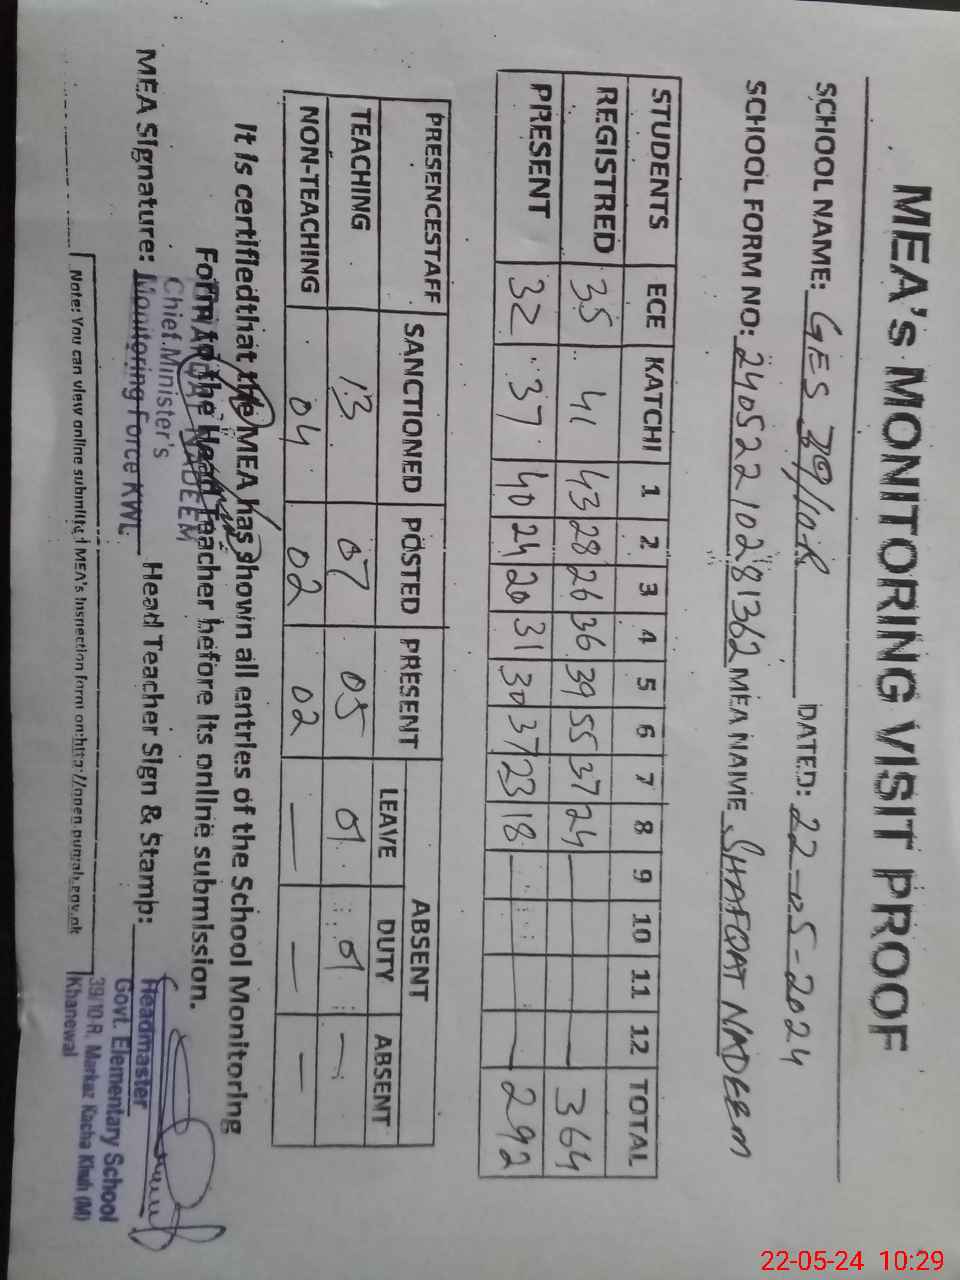 MEA's MONITORING VISIT PROOF
SCHOOL NAME: GES 39/10R DATED: 22-05-2024
SCHOOL FORM NO: 24052210281362 MEA NAME SHAFQAT NADEEM
STUDENTS ECE KATCHI 1 2 3 4 5 6 7 8 9 10 11 12 TOTAL
REGISTRED 35 41 43 28 26 36 39 55 37 24 — — 364
PRESENT 32 37 40 24 20 31 30 37 23 18 — — 292
PRESENCESTAFF SANCTIONED POSTED PRESENT ABSENT
LEAVE DUTY ABSENT
TEACHING 13 07 05 01 01 —
NON-TEACHING 04 02 02 — — —
It is certifiedthat the MEA has shown all entries of the School Monitoring
Form to the Head Teacher before its online submission.
NADEEM
Chief Minister's
Monitoring Force KWL
MEA Signature: Head Teacher Sign & Stamp:
Headmaster
Govt. Elementary School
39/10-R. Markaz Kacha Khuh (M)
Khanewal
Note: You can view online submitted MEA's Inspection form on:http://open.punjab.gov.pk
22-05-24 10:29